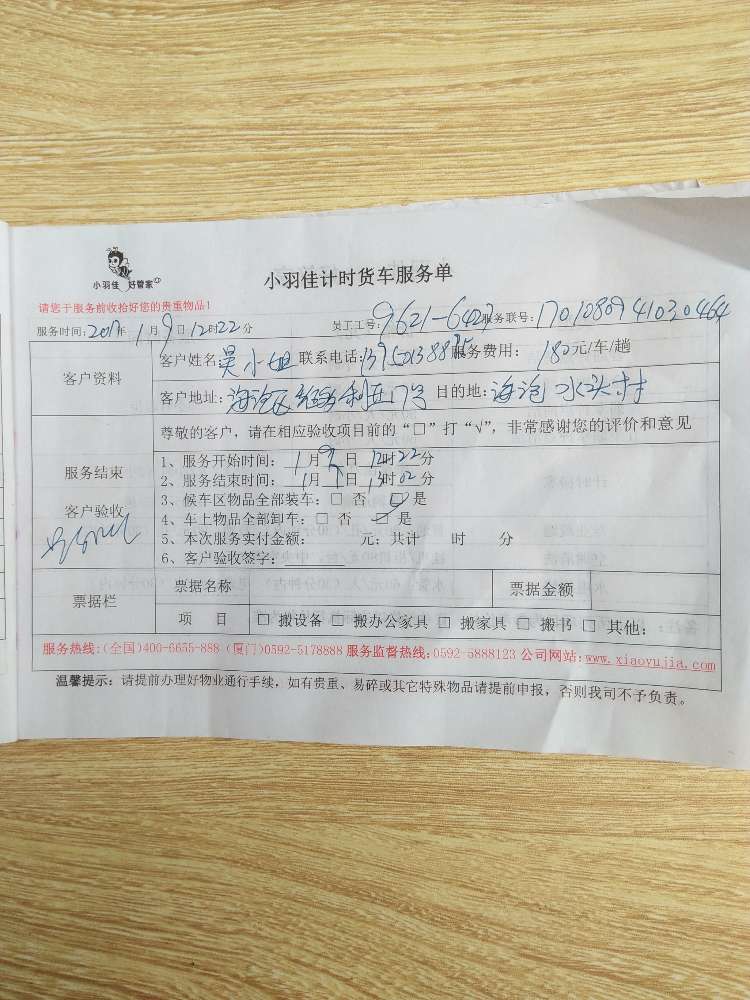 小羽佳 好管家
小羽佳计时货车服务单
请您于服务前收拾好您的贵重物品!
服务时间:2017年1月9日12时22分 员工工号:9621-6423 服务联号:170108094103 0464
客户资料
客户姓名:吴小姐 联系电话:13950138895 服务费用:180元/车/趟
客户地址:海沧区 利亚17号 目的地:海沧 水头村
尊敬的客户,请在相应验收项目前的“□”打“√”,非常感谢您的评价和意见
服务结束
客户验收
1、服务开始时间:1月9日12时22分
2、服务结束时间:1月9日13时02分
3、候车区物品全部装车:□ 否 ☑ 是
4、车上物品全部卸车:□ 否 ☑ 是
5、本次服务实付金额: 元;共计 时 分
6、客户验收签字:
票据栏
票据名称 票据金额
项 目 □ 搬设备 □ 搬办公家具 □ 搬家具 □ 搬书 □ 其他:
服务热线:(全国)400-6655-888 (厦门)0592-5178888 服务监督热线:0592-5888123 公司网站:www.xiaoyujia.com
温馨提示:请提前办理好物业通行手续,如有贵重、易碎或其它特殊物品请提前申报,否则我司不予负责。